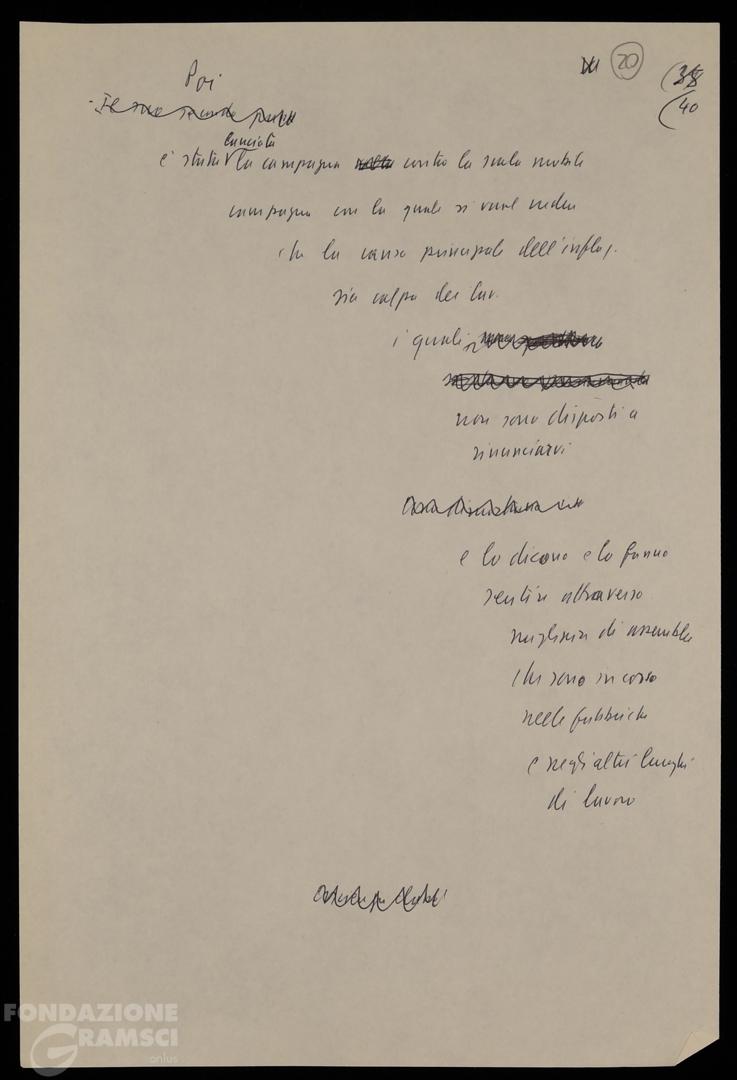 20
40
Poi
lanciata
è stata la campagna contro la scala mobile
campagna con la quale si vuol vedere
che la causa principale dell'inflaz.
sia colpa dei lav.
i quali
non sono disposti a
rinunciarvi
e lo dicono e lo fanno
sentire attraverso
migliaia di assemblee
che sono in corso
nelle fabbriche
e negli altri luoghi
di lavoro
FONDAZIONE
GRAMSCI
onlus